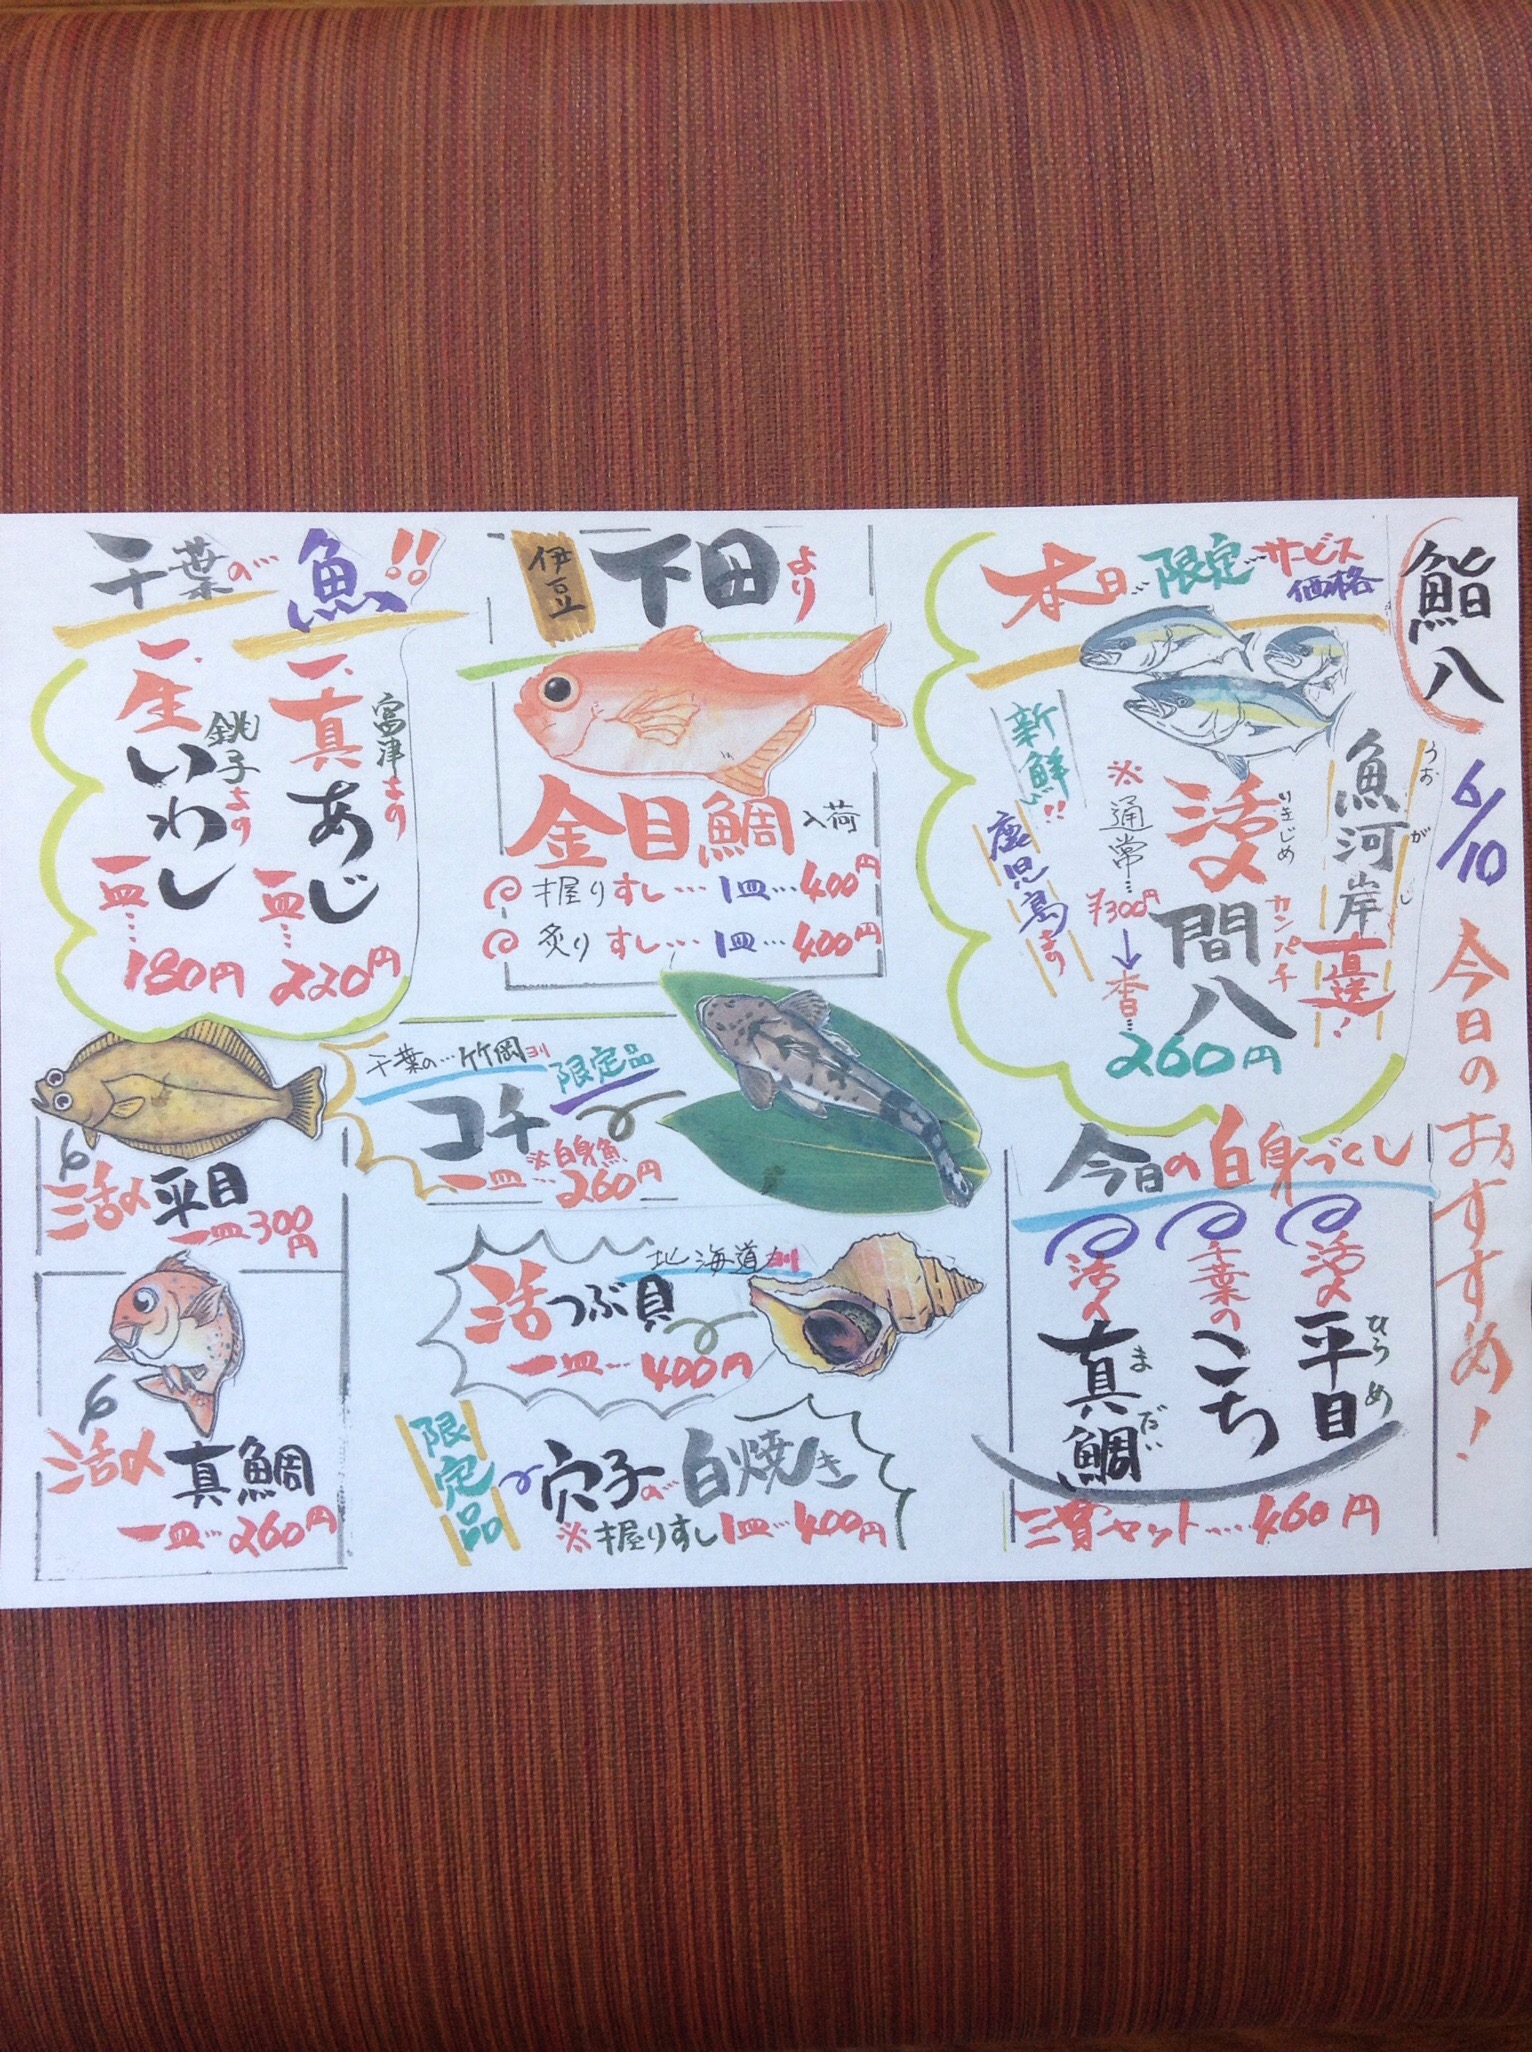 鮨八
6/10
今日のおすすめ!
本日…限定…サービス
価格
魚河岸直送!
うおがし
活〆
いきじめ
間八
カンパチ
※通常…¥300円
↓
本日…
260円
新鮮!!
鹿児島より
今日の白身づくし
活〆平目
ひらめ
千葉のこち
活〆真鯛
まだい
三貫セット…460円
伊豆
下田より
金目鯛入荷
握りすし…1皿…400円
炙りすし…1皿…400円
千葉の…竹岡ヨリ
限定品
コチ
※白身魚
一皿…260円
北海道ヨリ
活つぶ貝
一皿…400円
限定品
穴子の…白焼き
※握りすし1皿…400円
千葉の…魚!!
一、真あじ
富津より
一皿…
220円
一、生いわし
銚子より
一皿…
180円
活〆平目
一皿300円
活〆真鯛
一皿…260円